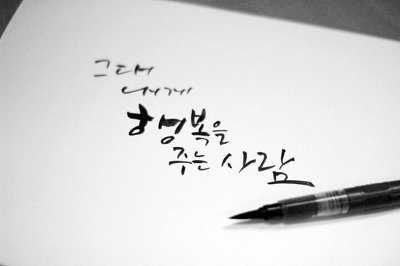 그대
내게
행복을
주는 사람